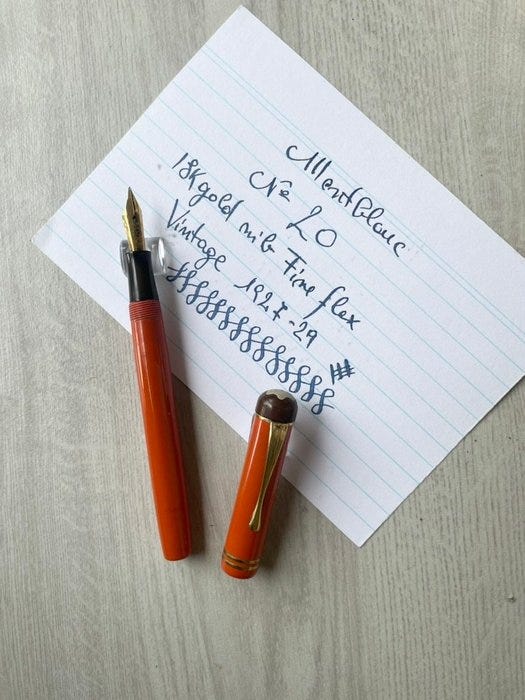 Montblanc
Nº 20
18K gold nib Fine flex
Vintage 1927-29